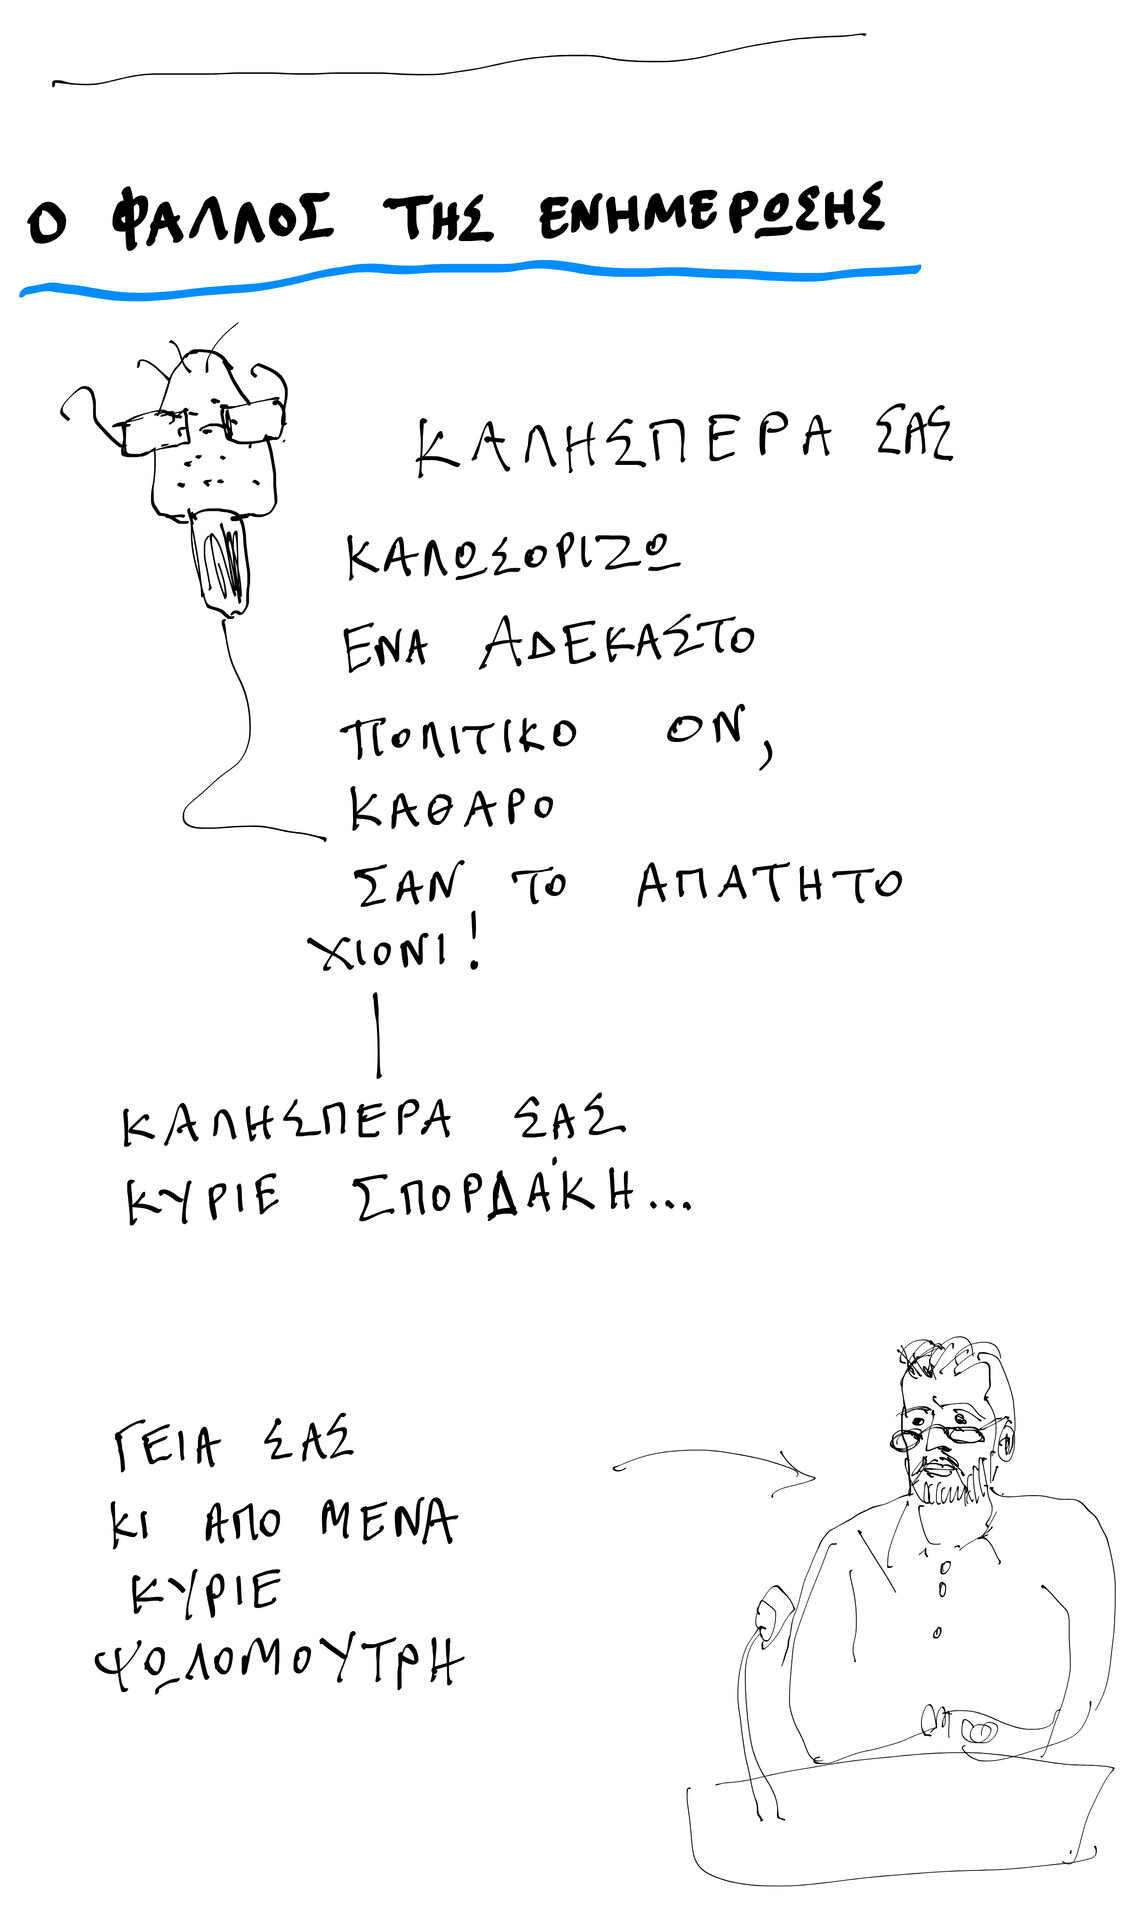 Ο ΦΑΛΛΟΣ ΤΗΣ ΕΝΗΜΕΡΩΣΗΣ
ΚΑΛΗΣΠΕΡΑ ΣΑΣ
ΚΑΛΩΣΟΡΙΖΩ
ΕΝΑ ΑΔΕΚΑΣΤΟ
ΠΟΛΙΤΙΚΟ ΟΝ,
ΚΑΘΑΡΟ
ΣΑΝ ΤΟ ΑΠΑΤΗΤΟ
ΧΙΟΝΙ!
ΚΑΛΗΣΠΕΡΑ ΣΑΣ
ΚΥΡΙΕ ΣΠΟΡΔΑΚΗ...
ΓΕΙΑ ΣΑΣ
ΚΙ ΑΠΟ ΜΕΝΑ
ΚΥΡΙΕ
ΨΩΛΟΜΟΥΤΡΗ